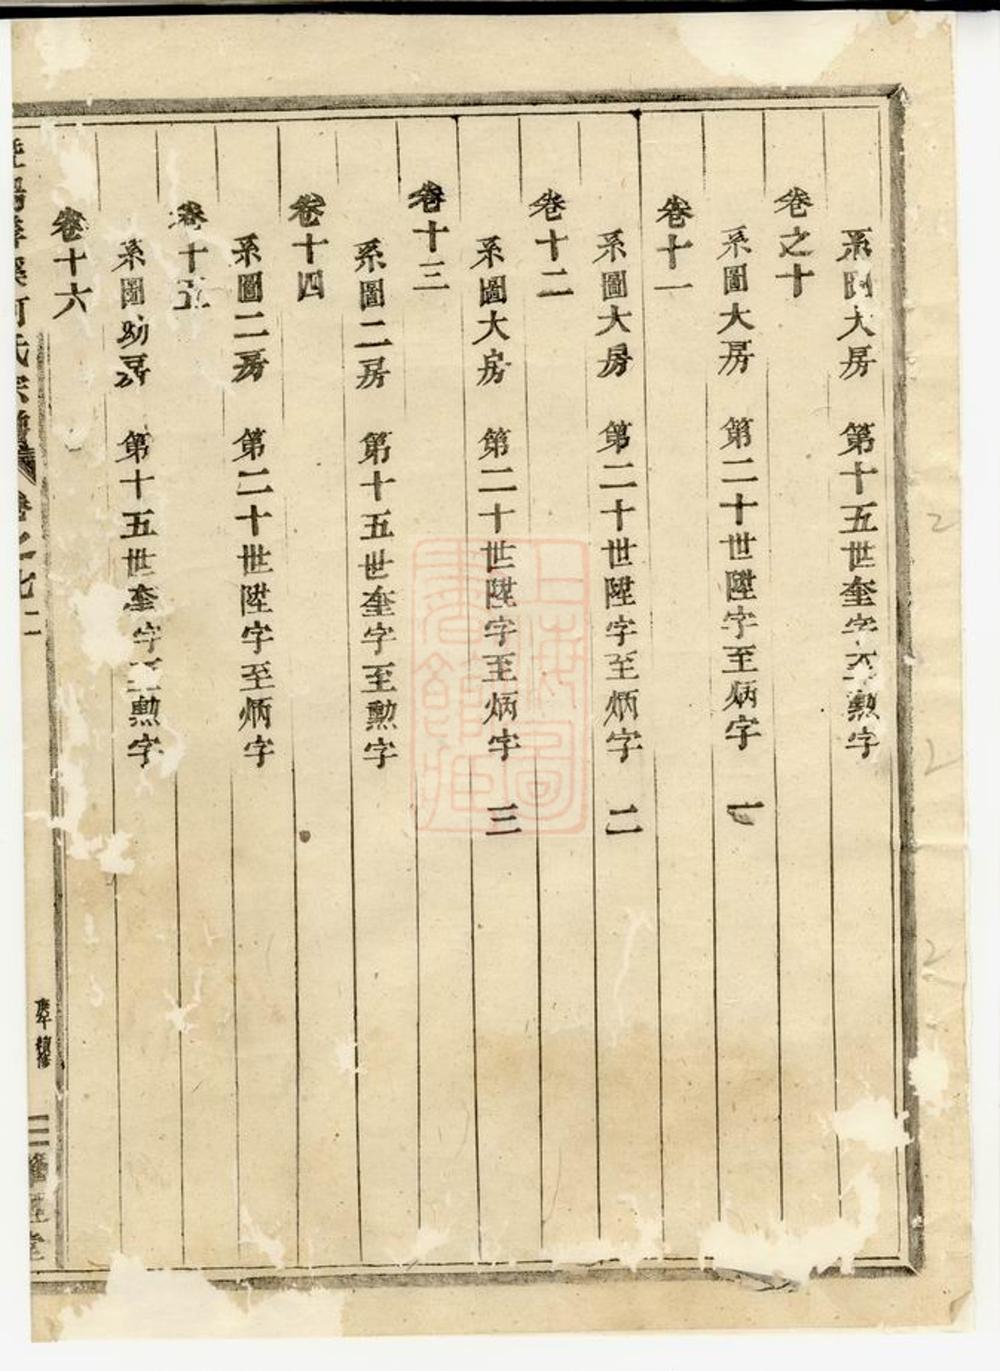 系圖大房　第十五世奎字至勲字
卷之十
系圖大房　第二十世陞字至炳字　一
卷十一
系圖大房　第二十世陞字至炳字　二
卷十二
系圖大房　第二十世陞字至炳字　三
卷十三
系圖二房　第十五世奎字至勲字
卷十四
系圖二房　第二十世陞字至炳字
卷十五
系圖幼房　第十五世奎字至勲字
卷十六
氏宗譜